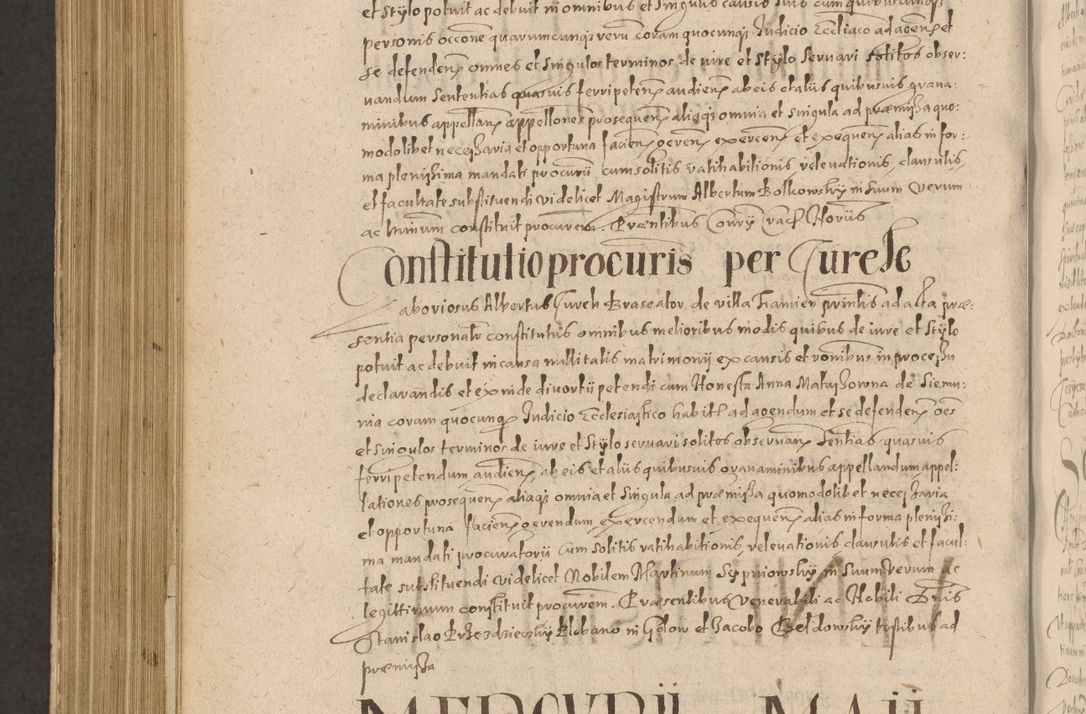 et Stylo potuit ac debuit in omnibus et Singulis causis suis cum quibuscunqȝ
personis occone quarumcunqȝ reru coram quocunqȝ Iudicio Eccliaco ad agen et
se defenden omnes et Singulos terminos de iure et Stylo Seruari solitos obser:
uandum Sententias quasuis ferri peten audien ab eis et aliis quibusuis graua:
minibus appellan appellones prosequen aliaqȝ omnia et singula ad præmissa quo:
modolibet necessaria et opportuna facien geren exercen et exequen alias in for:
ma plenissima mandati procurii cum solitis ratihabitionis releuationis clausulis
et facultate substituendi videlicet Magistrum Albertum Bolkowsky in Suum verum
ac ltimum constituit procurem. Præntibus
Constitutio procuris per Iurek
Laboriosus Albertus Iurek Braseator de villa Tamien printis ad acta præ:
sentia personalr constitutus omnibus melioribus modis quibus de iure et Stylo
potuit ac debuit in causa nullitatis matrimonij ex causis et ronibus in processu
declarandis et exinde diuortii petendi cum Honesta Anna Matyszowna de Siemu:
nia coram quocunqȝ Iudicio Ecclesiastico habito ad agendum et se defenden oes
et Singulos terminos de iure et Stylo seruari solitos obseruan Sentias quasuis
ferri petendum audien ab eis et aliis quibusuis grauaminibus appellandum appel:
lationes prosequen aliaqȝ omnia et Singula ad præmissa quomodolibet necessaria
et opportuna facien gerendum exercendum et exequen alias in forma plenissi:
ma mandati procuratorii cum solitis ratihabitionis releuationis clausulis et facul:
tate substituendi videlicet Nobilem Martinum Sepniowsky in Suum verum ac
legittimum constituit procurem. Præsentibus Venerabili ac Nobili Dnis
Stanislao Krzezdziecsky Plebano in Golow et Jacobo Beldowsky testibus ad
præmissa
MERCVRII MAII